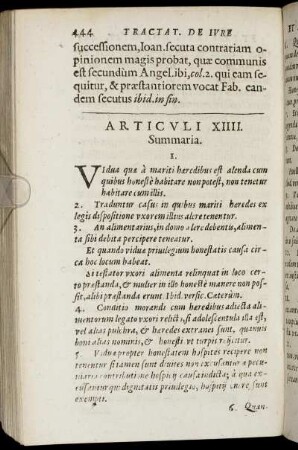 444. TRACTAT. DE IVRE
successionem, Ioan. secuta contrariam o-
pinionem magis probat, quæ communis
est secundùm Ange. ibi, col. 2. qui eam se-
quitur, & præstantiorem vocat Fab. ean-
dem secutus ibid. in fin.
ARTICVLI XIIII.
Summaria.
1.
Vidua quæ à mariti heredibus est alenda cum
quibus honestè habitare non potest, non tenetur
habitare cum illis.
2. Traduntur casus in quibus mariti heredes ex
legis dispositione vxorem illius alere tenentur.
3. An alimentarius, in domo alere debentis, alimen-
ta sibi debita percipere teneatur.
Et quando vidua priuilegium honestatis causa cir-
ca hoc locum habeat.
Si testator vxori alimenta relinquat in loco cer-
to præstanda, & mulier in illo honestè manere non pos-
sit, alibi præstanda erunt. Ibid. versic. Cæterùm.
4. Conditio morandi cum heredibus adiecta ali-
mentorum legato vxori relicti, si adolescentula illa est,
vel alias pulchra, & heredes extranei sunt, quamuis
boni alias nominis, & honesti vt turpis rejicitur.
5. Vidua propter honestatem hospites recipere non
tenetur si tamen sunt
muniæ contributione hospitij causa indicta; à qua ex-
dignitatis priuilegio, hospitij
exempti.
6. Quan.